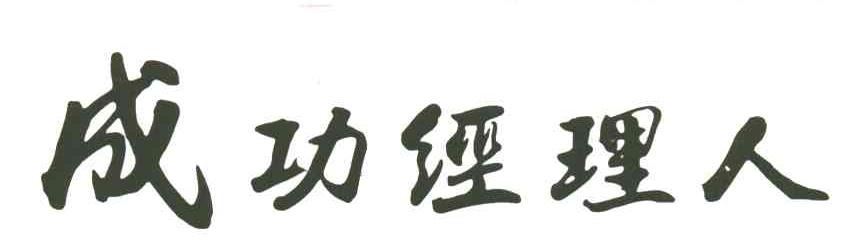 成功經理人